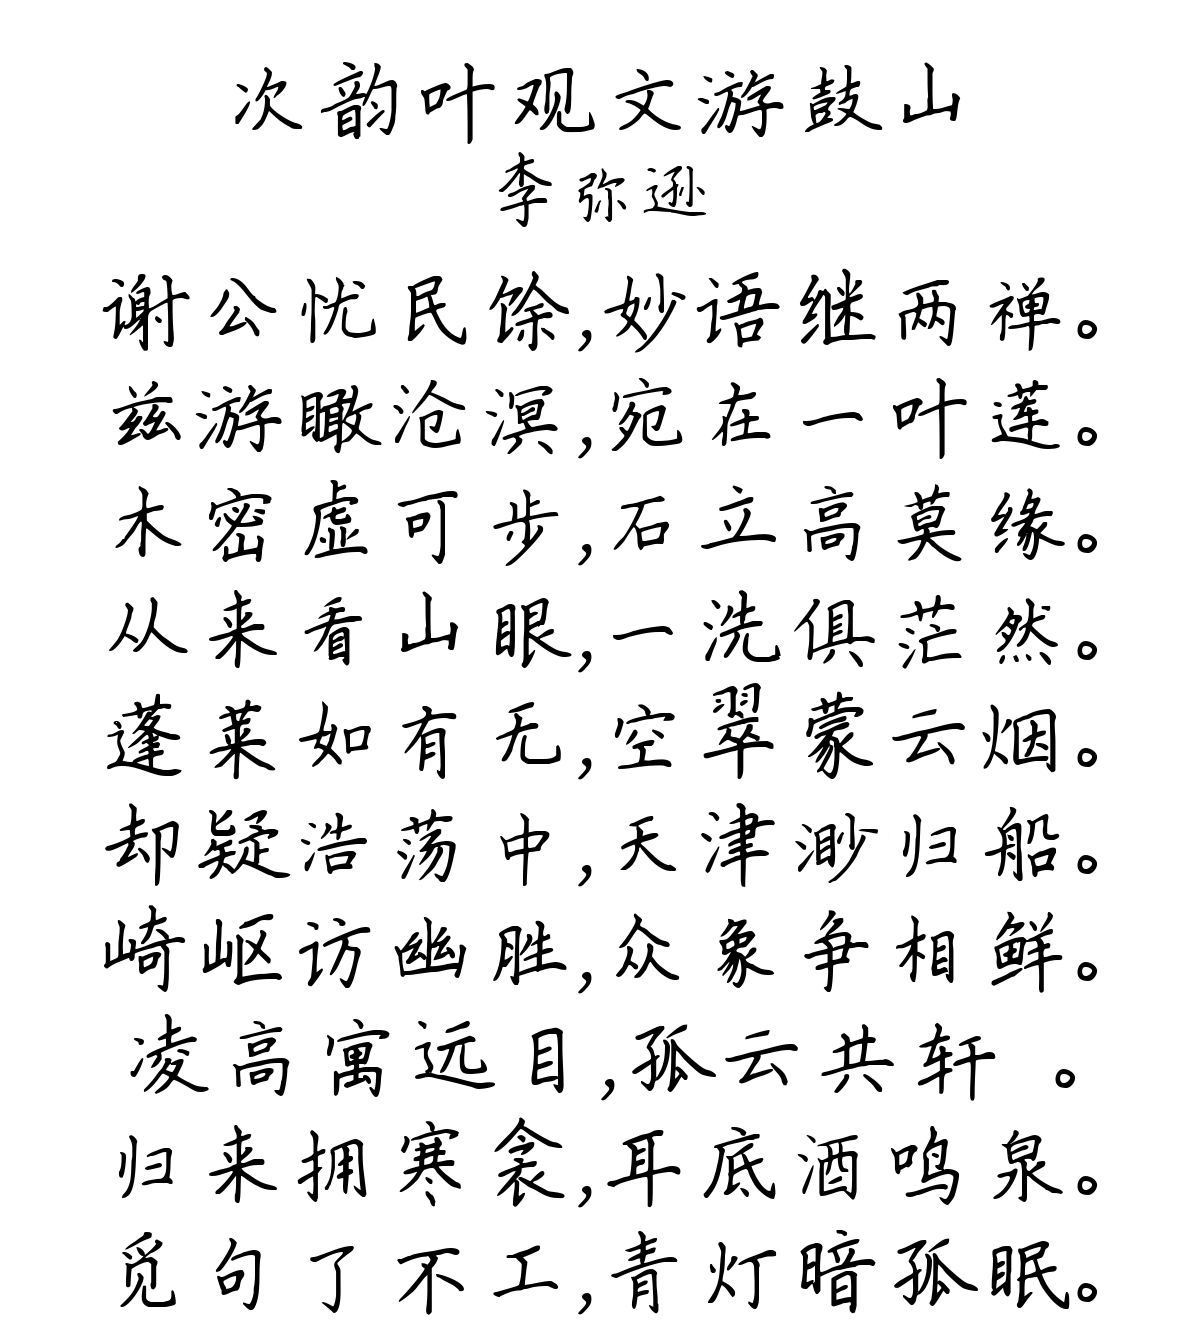 次韵叶观文游鼓山
李弥逊
谢公忧民馀,妙语继两禅。
兹游瞰沧溟,宛在一叶莲。
木密虚可步,石立高莫缘。
从来看山眼,一洗俱茫然。
蓬莱如有无,空翠蒙云烟。
却疑浩荡中,天津渺归船。
崎岖访幽胜,众象争相鲜。
凌高寓远目,孤云共轩 。
归来拥寒衾,耳底酒鸣泉。
觅句了不工,青灯暗孤眠。